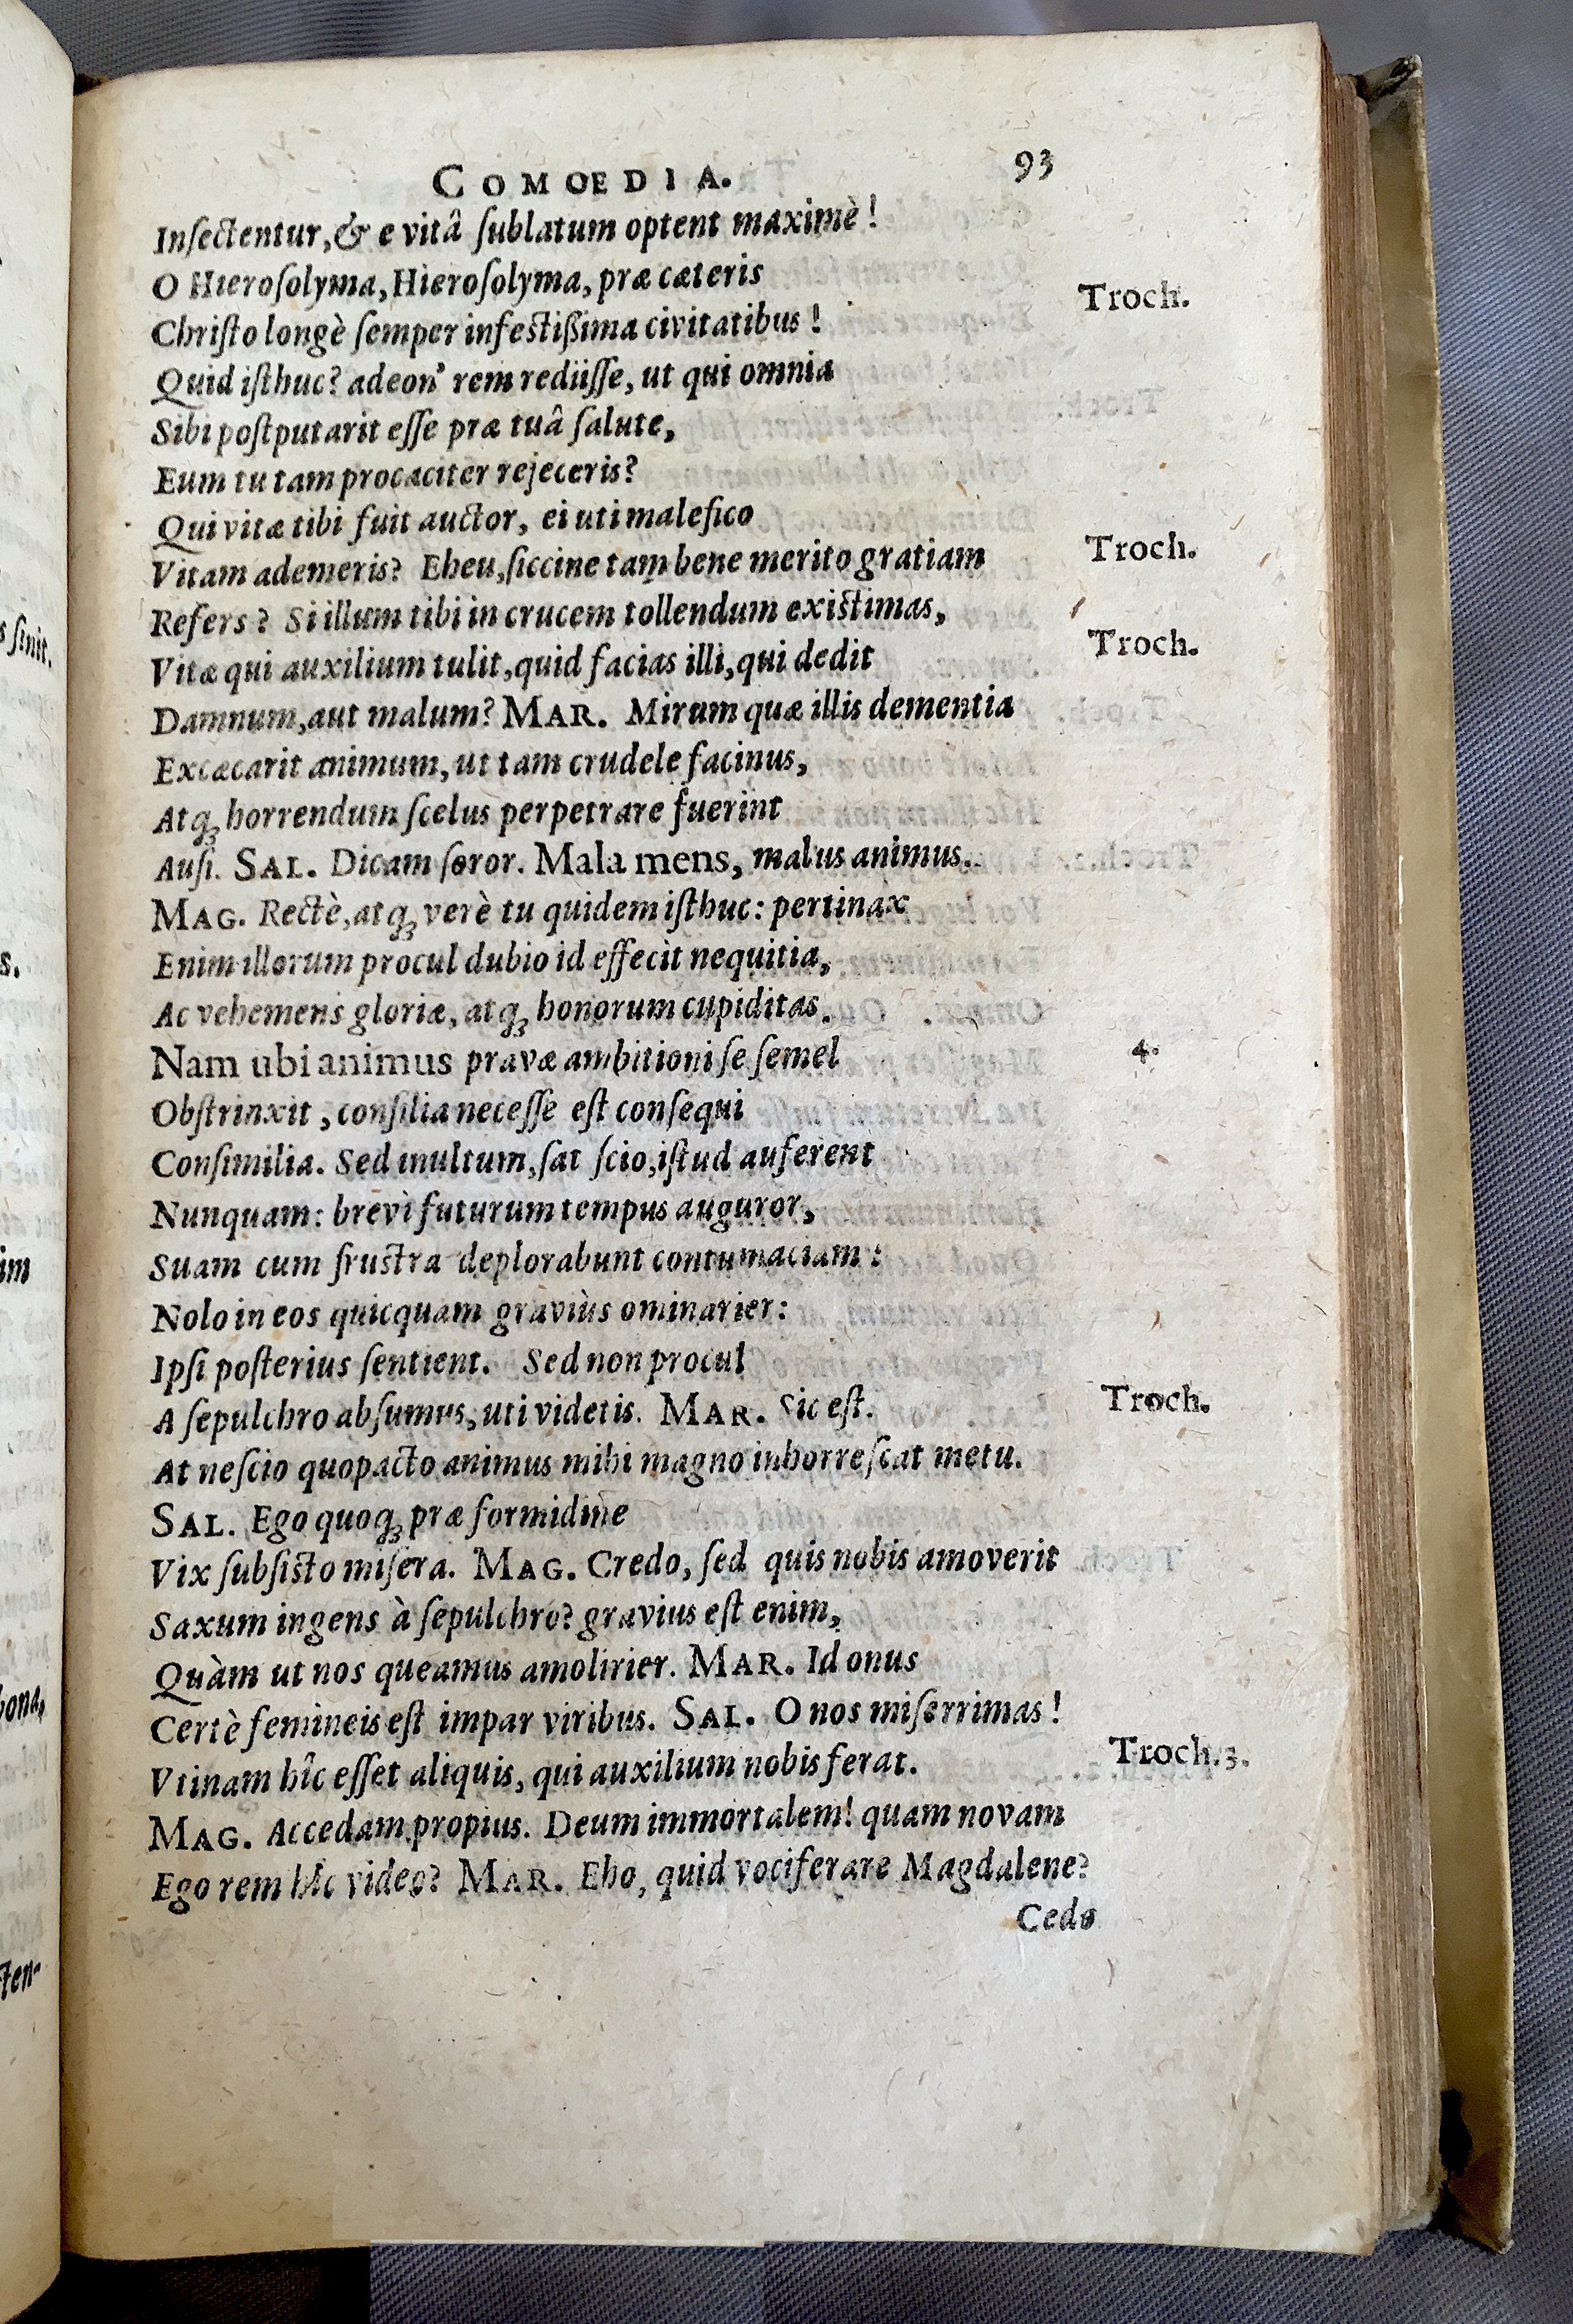 COMOEDIA. 93
Insectentur, & e vitâ sublatum optent maximè!
O Hierosolyma, Hierosolyma, præ cæteris
Troch.
Christo longè semper infestißima civitatibus!
Quid isthuc? adeon' rem rediisse, ut qui omnia
Sibi postputarit esse præ tuâ salute,
Eum tu tam procaciter rejeceris?
Qui vitæ tibi fuit auctor, ei uti malefico
Vitam ademeris? Eheu, siccine tam bene merito gratiam Troch.
Refers? Si illum tibi in crucem tollendum existimas,
Vitæ qui auxilium tulit, quid facias illi, qui dedit Troch.
Damnum, aut malum? MAR. Mirum quæ illis dementia
Excæcarit animum, ut tam crudele facinus,
Atq; horrendum scelus perpetrare fuerint
Ausi. SAL. Dicam soror. Mala mens, malus animus.
MAG. Rectè, atq; verè tu quidem isthuc: pertinax
Enim illorum procul dubio id effecit nequitia,
Ac vehemens gloriæ, atq; honorum cupiditas.
Nam ubi animus pravæ ambitioni se semel 4.
Obstrinxit, consilia necesse est consequi
Consimilia. Sed inultum, sat scio, istud auferent
Nunquam: brevi futurum tempus auguror,
Suam cum frustra deplorabunt contumaciam:
Nolo in eos quicquam graviùs ominarier:
Ipsi posterius sentient. Sed non procul
A sepulchro absumus, uti videtis. MAR. Sic est. Troch.
At nescio quopacto animus mihi magno inhorrescat metu.
SAL. Ego quoq; præ formidine
Vix subsisto misera. MAG. Credo, sed quis nobis amoverit
Saxum ingens à sepulchro? gravius est enim,
Quàm ut nos queamus amolirier. MAR. Id onus
Certè femineis est impar viribus. SAL. O nos miserrimas!
Vtinam hîc esset aliquis, qui auxilium nobis ferat. Troch. 3.
MAG. Accedam propius. Deum immortalem! quam novam
Ego rem hîc video? MAR. Eho, quid vociferare Magdalene?
Cedo